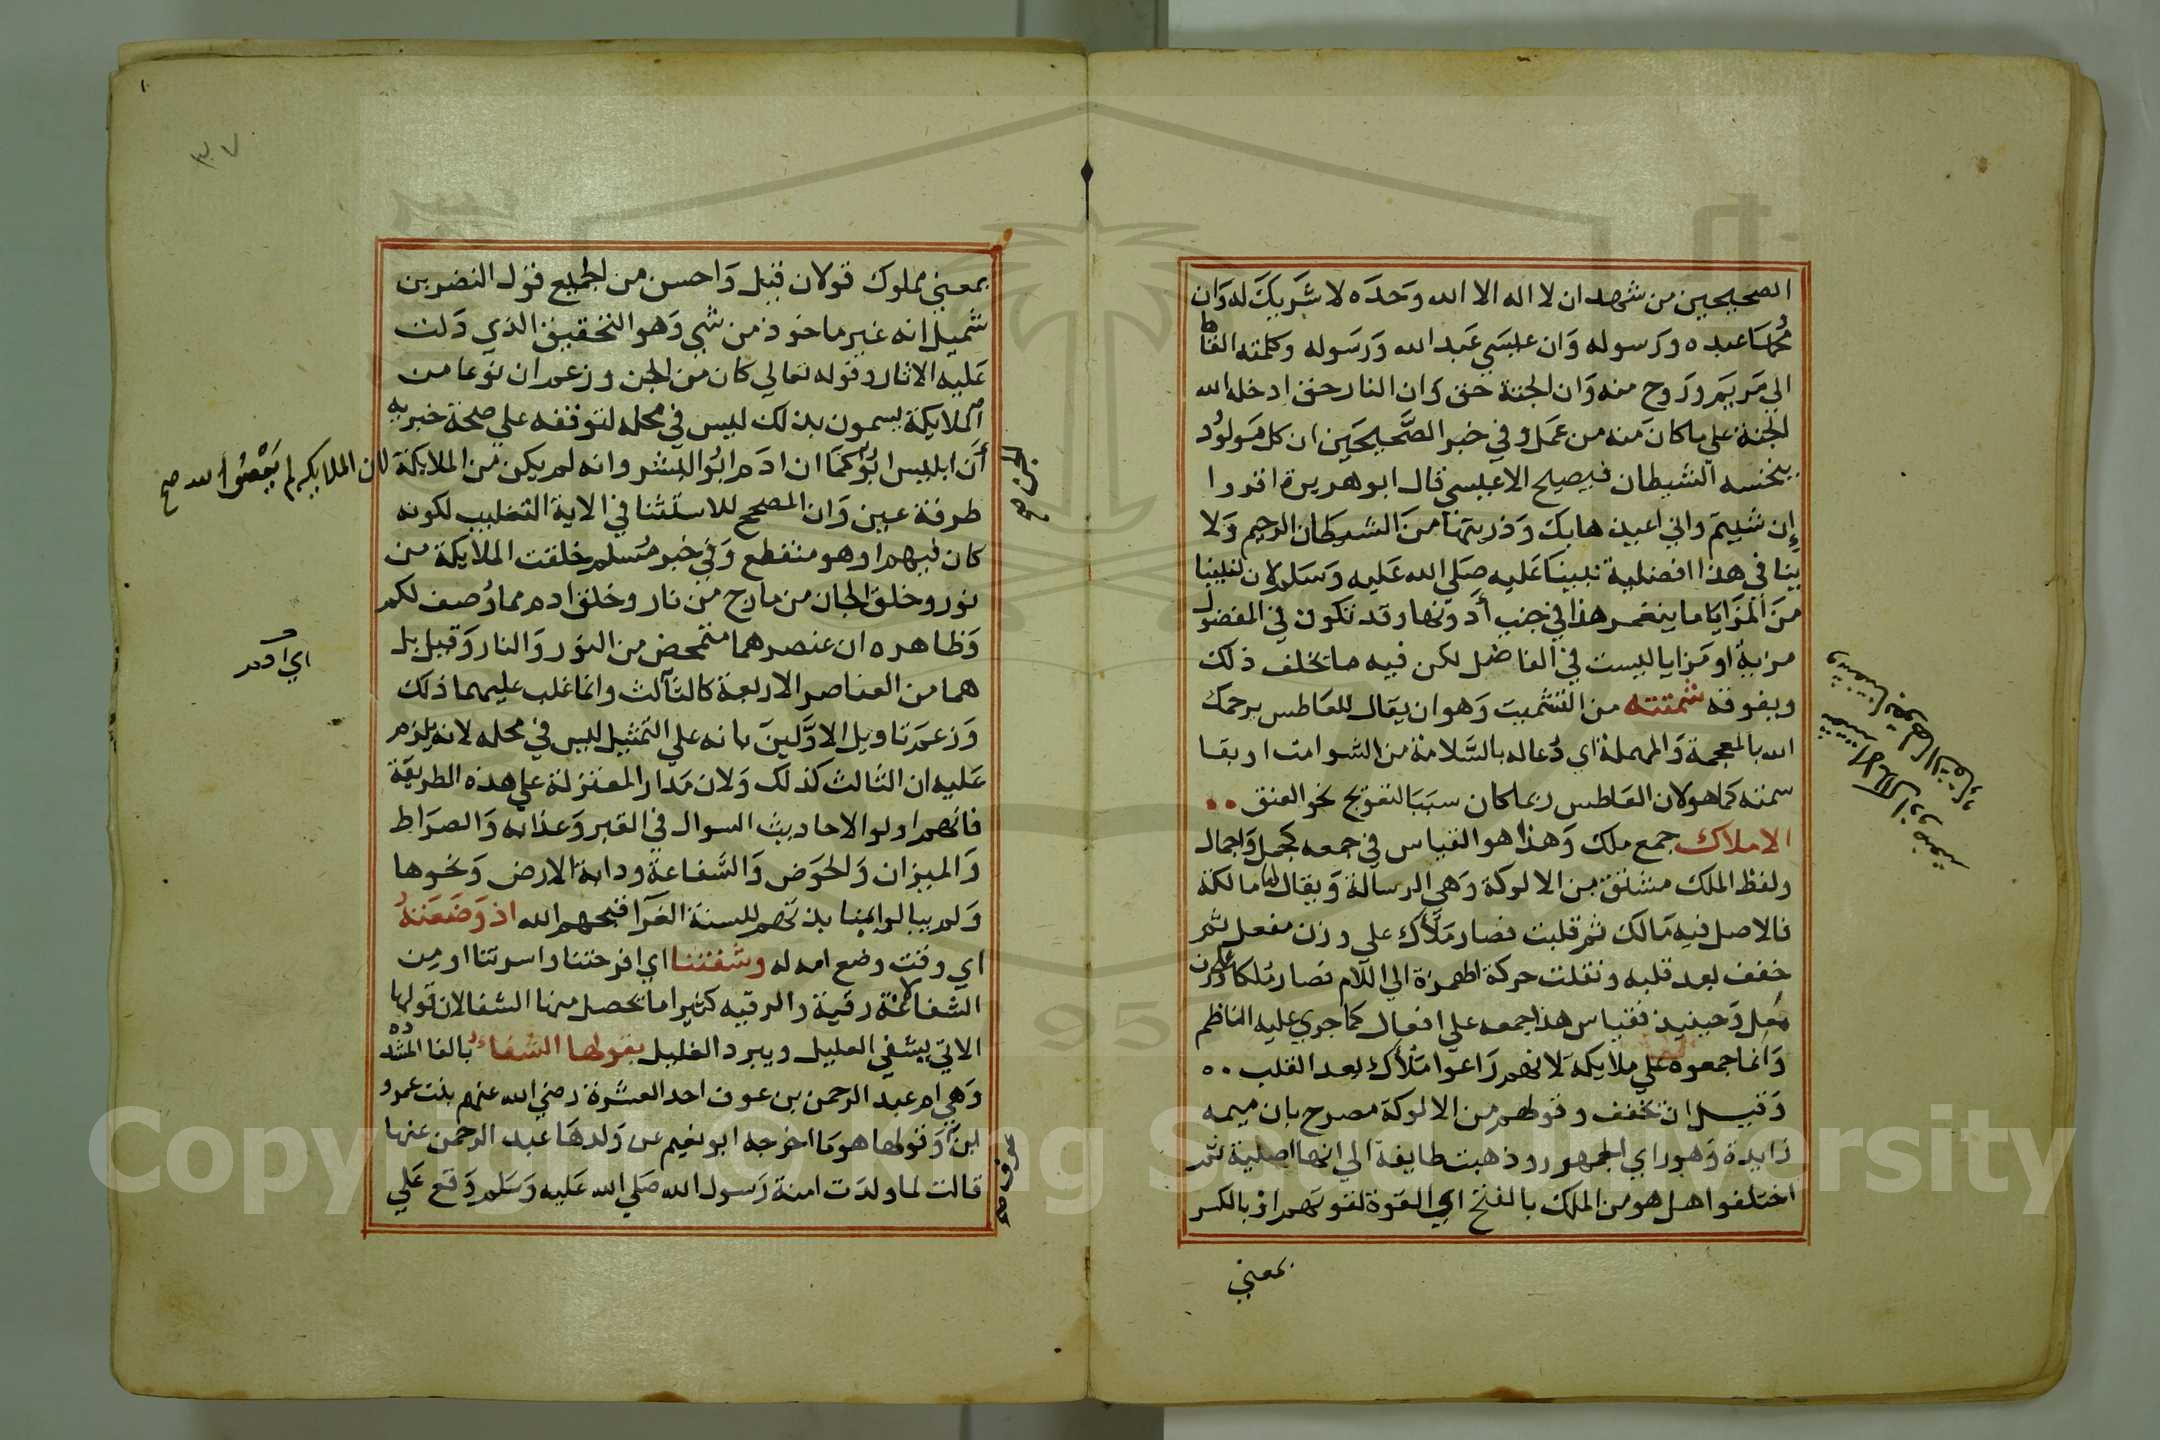 الصحيحين من شهد ان لا اله الا الله وحده لا شريك له وان
محمدا عبده ورسوله وان عيسي عبد الله ورسوله وكلمته القاها
الي مريم وروح منه وان الجنة حق وان النار حق ادخله الله
الجنة علي ما كان منه من عمل وفي خبر الصحيحين ان كل مولود
ينخسه الشيطان فيصيح الا عيسي قال ابو هريرة اقروا
إن شيتم واني اعيذها بك وذريتها من الشيطان الرجيم ولا
ينافي هذا افضلية نبينا عليه صلي الله عليه وسلم لان لنبينا
من المزايا ما ينغمر هذا في جنب أدونها وقد تكون في المفضول
مزية او مزايا ليست في الفاضل لكن فيه ما تخلف ذلك
ويفوقه شمتته من التشميت وهو ان يقال للعاطس يرحمك
الله بالمعجمة والمهملة اي دعا له بالسلامة من الشوامت او بقا
سمته كما هو لان العاطس ربما كان سببا لتعويج نحو العنق
الاملاك جمع ملك وهذا هو القياس في جمعه كجمل واجمال
ولفظ الملك مشتق من الالوكة وهي الرسالة ويقال لها مالكة
فالاصل فيه مالك ثم قلبت فصار ملأك علي وزن مفعل ثم
خفف بعد قلبه ونقلت حركة الهمزة الي اللام فصار ملكا علي وزن
معل وحينيذ فقياس هذا جمعه علي افعال كما جري عليه الناظم
وانما جمعوه علي ملايكة لانهم راعوا ملأك بعد القلب
وقبل ان تخفف وقولهم من الالوكة مصرح بان ميمه
زايدة وهو راي الجمهور وذهبت طايفة الي انها اصلية ثم
اختلفوا هل هو من الملك بالفتح اي القوة لقوتهم او بالكسر
بمعني
١٠
٣٠٧
بمعني مملوك قولان قيل واحسن من الجميع قول النضر بن
شميل انه غير ماخوذ من شي وهو التحقيق الذي دلت
عليه الاثار وقوله تعالي كان من الجن وزعم ان نوعا من
الملايكة يسمون بذلك ليس في محله لتوقفه علي صحة خبر به
أن ابليس ابو كما ان ادم ابو البشر وانه لم يكن من الملايكة
الجن صح
لان الملايكة لم يعصوا الله صح
طرفة عين وان المصحح للاستثنا في الاية التغليب لكونه
كان فيهم او هو منقطع وفي خبر مسلم خلقت الملايكة من
نور وخلق الجان من مارج من نار وخلق ادم مما وصف لكم
وظاهره ان عنصرهما متمحض من النور والنار وقيل بل
هما من العناصر الاربعة كالثالث وانما غلب عليهما ذلك
اي ادم
وزعم تاويل الاولين بانه علي التمثيل ليس في محله لانه يلزم
عليه ان الثالث كذلك ولان مدار المعتزلة علي هذه الطريقة
فانهم اولوا الاحاديث السوال في القبر وعذابه والصراط
والميزان والحوض والشفاعة ودابة الارض ونحوها
ولم يبالوا بمنابذتهم للسنة الغرا قبحهم الله اذ وضعته
اي وقت وضع امه له وشفتنا اي افرحتنا واسرتنا او من
الشفا لانه رقية والرقيه كثيرا ما تحصل منها الشفا لان قولها
الاتي يشفي العليل ويبرد الغليل بقولها الشفاء بالفا المشدده
وهي ام عبد الرحمن بن عوف احد العشرة رضي الله عنهم بنت عمرو
ابن وقولها هو ما اخرجه ابو نعيم عن ولدها عبد الرحمن عنها
عوف صح
قالت لما ولدت امنة رسول الله صلي الله عليه وسلم وقع علي
Copyright © King Saud University